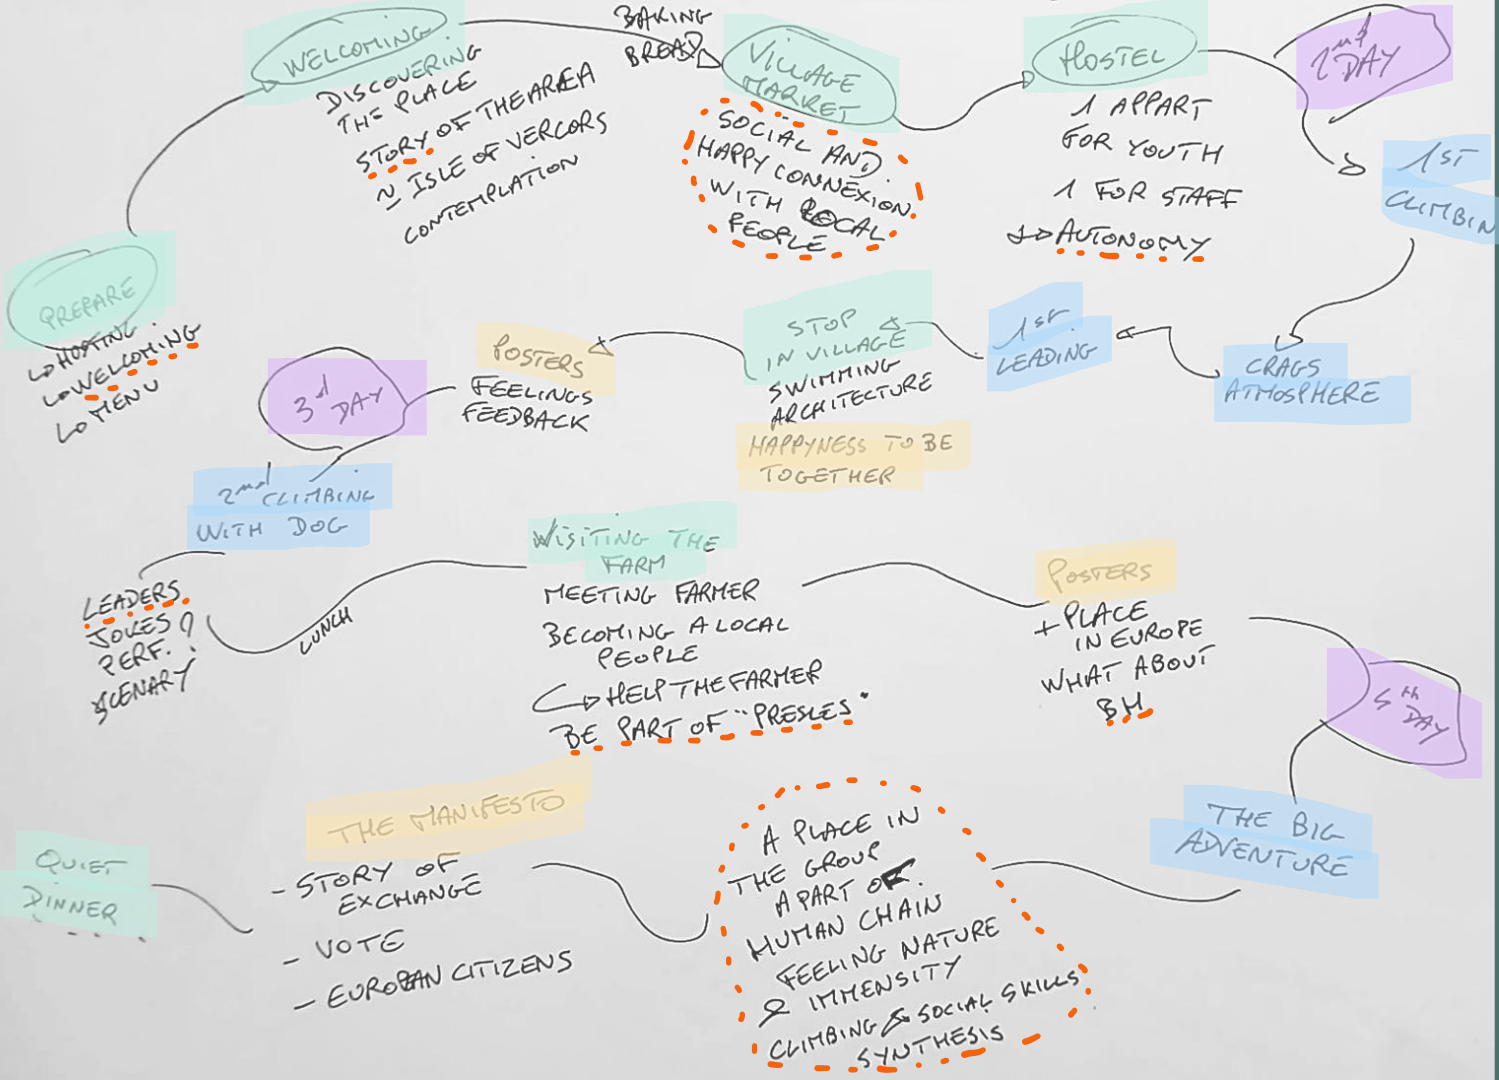 PREPARE
↳ HOSTING
↳ WELCOMING
↳ MENU
WELCOMING
DISCOVERING
THE PLACE
STORY OF THE AREA
~ ISLE OF VERCORS
CONTEMPLATION
BAKING
BREAD
VILLAGE
MARKET
SOCIAL AND
HAPPY CONNEXION
WITH LOCAL
PEOPLE
HOSTEL
1 APPART
FOR YOUTH
1 FOR STAFF
↳ AUTONOMY
2nd
DAY
1ST
CLIMBIN
CRAGS
ATMOSPHERE
1ST
LEADING
STOP
IN VILLAGE
SWIMMING
ARCHITECTURE
HAPPYNESS TO BE
TOGETHER
POSTERS
FEELINGS
FEEDBACK
3rd
DAY
2nd CLIMBING
WITH DOG
LEADERS
JOKES ?
PERF.
SCENARY
LUNCH
VISITING THE
FARM
MEETING FARMER
BECOMING A LOCAL
PEOPLE
↳ HELP THE FARMER
BE PART OF "PRESLES"
POSTERS
+ PLACE
IN EUROPE
WHAT ABOUT
BH
th
DAY
THE BIG
ADVENTURE
A PLACE IN
THE GROUP
A PART OF
HUMAN CHAIN
FEELING NATURE
& IMMENSITY
CLIMBING & SOCIAL SKILLS
SYNTHESIS
THE MANIFESTO
- STORY OF
EXCHANGE
- VOTE
- EUROPEAN CITIZENS
QUIET
DINNER